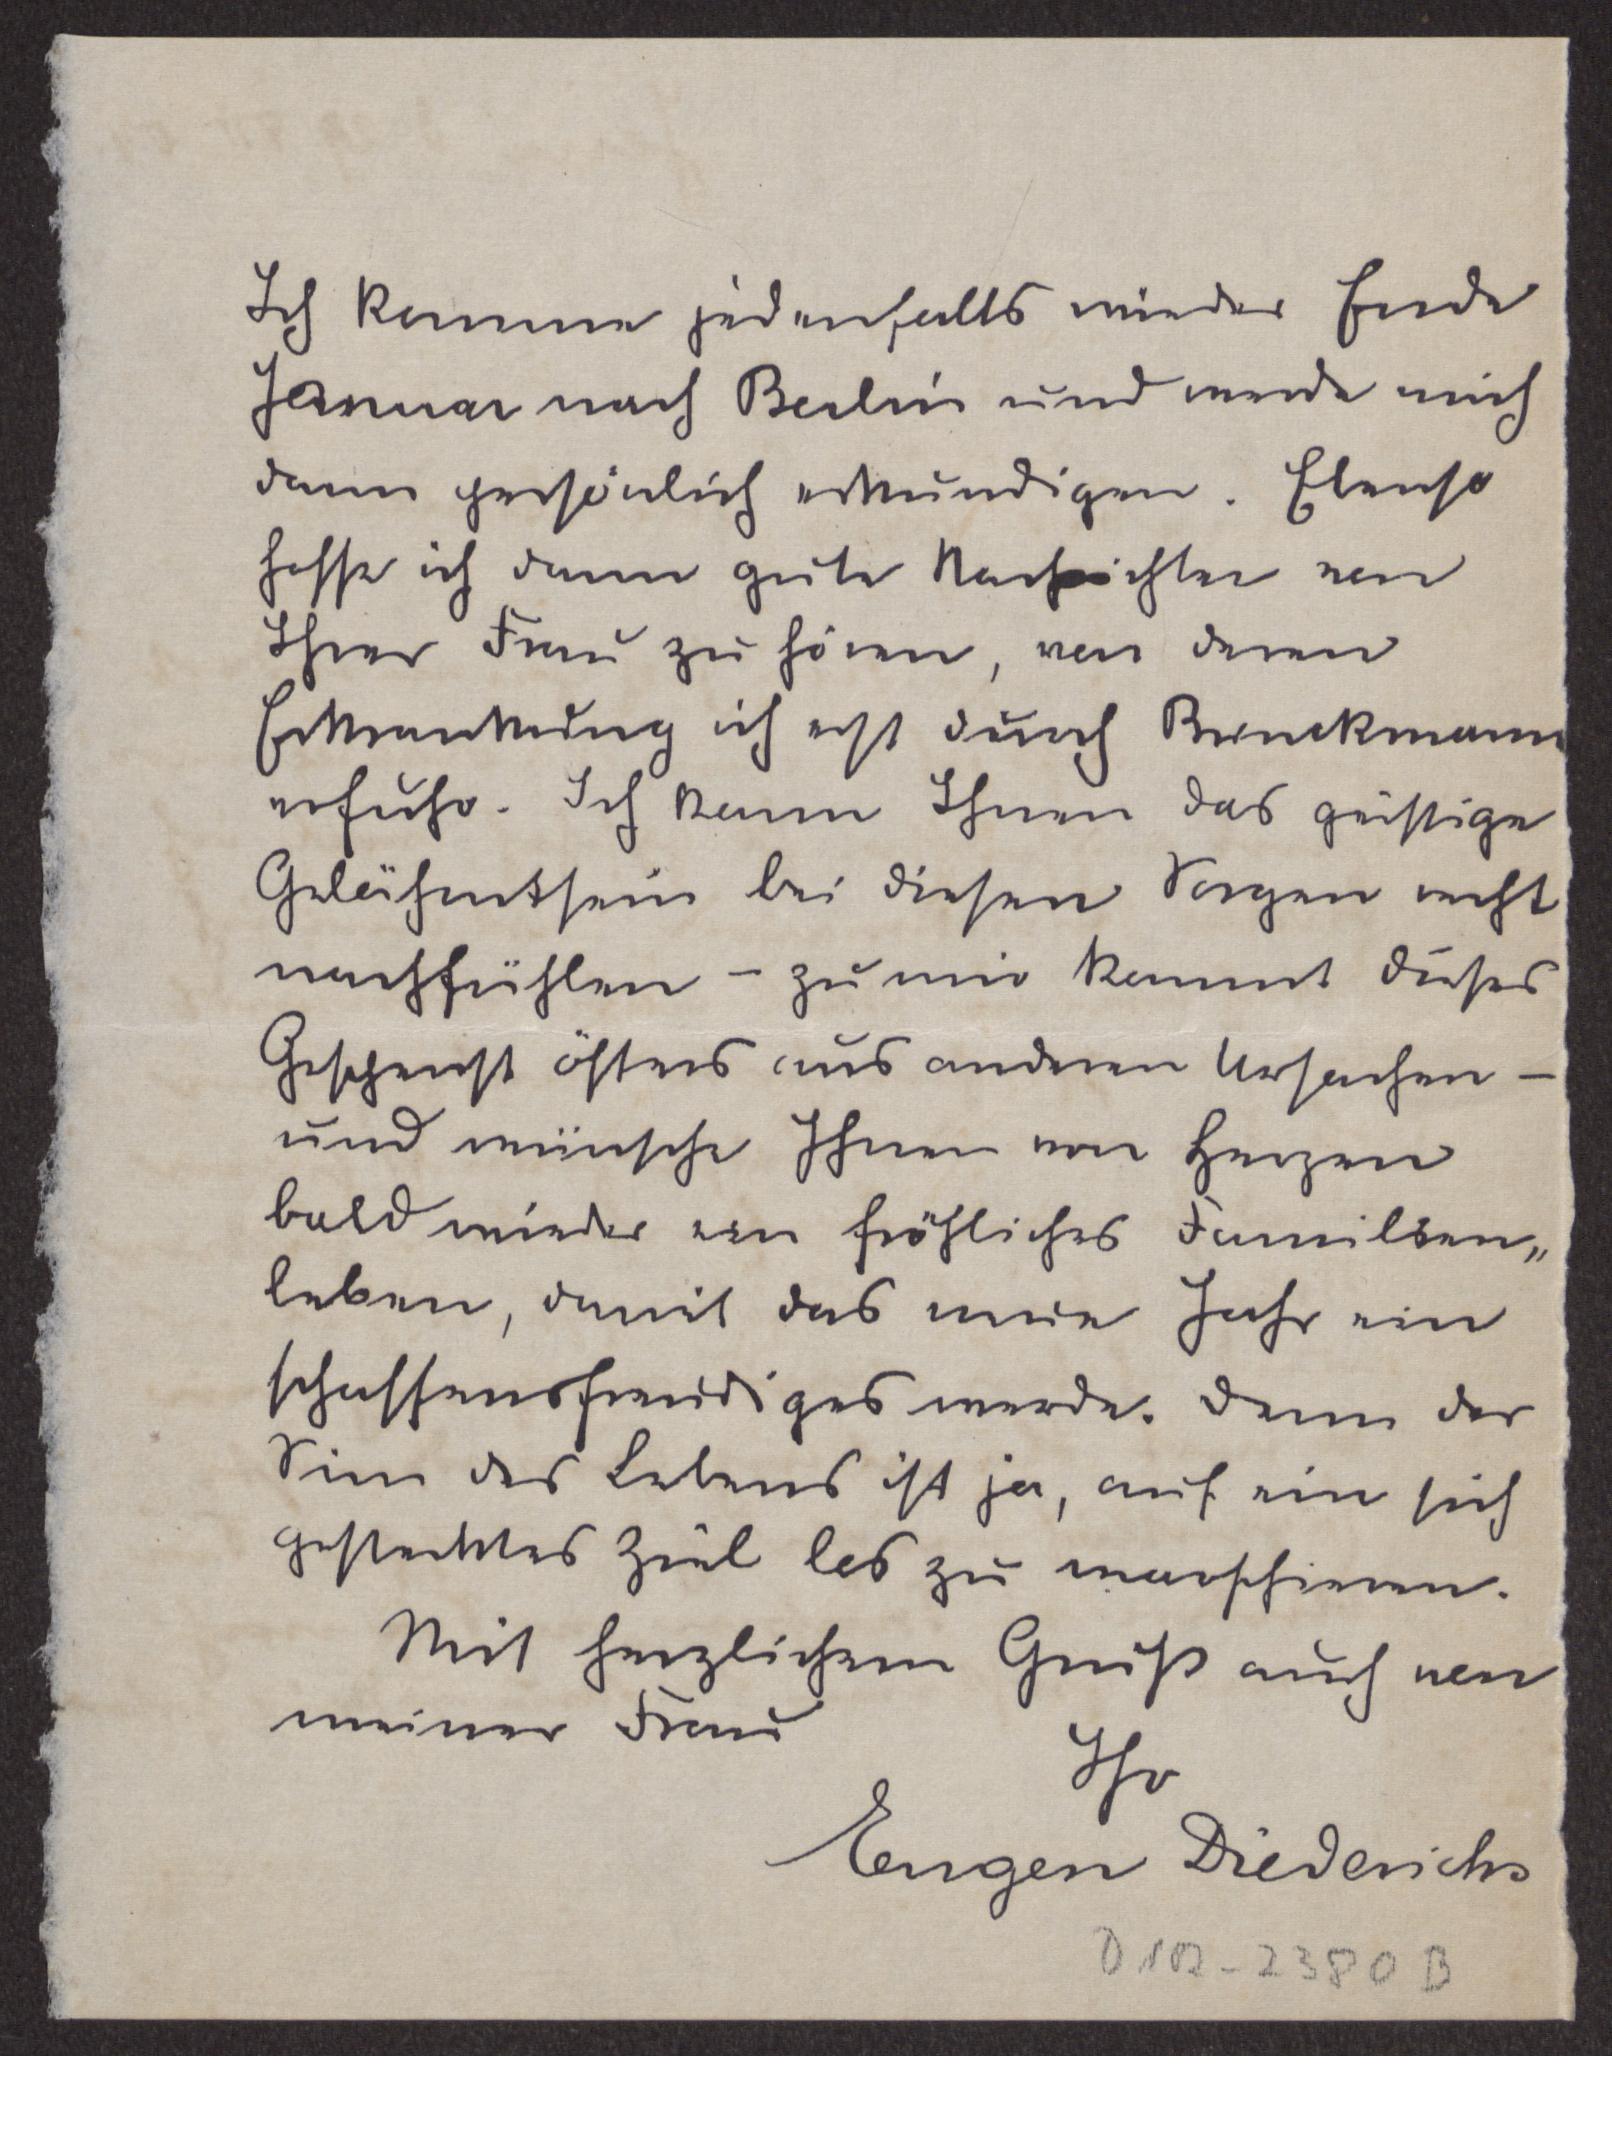 Ich komme jedenfalls wieder Ende
Januar nach Berlin und werde mich
dann persönlich erkundigen. Ebenso
hoffe ich dann gute Nachrichten von
Ihrer Frau zu hören, von deren
Erkrankung ich erst durch Brinckmann
erfuhr. Ich kann Ihnen das geistige
Gelähmtsein bei diesen Sorgen recht
nachfühlen – zu mir kommt dieses
Gespenst öfters aus anderen Ursachen –
und wünsche Ihnen von Herzen
bald wieder ein fröhliches Familien„
leben, damit das neue Jahr ein
schaffensfreudiges werde. Denn der
Sinn des Lebens ist ja, auf ein sich
gestecktes Ziel los zu marschieren.
Mit herzlichem Gruß auch von
meiner Frau
Ihr
Eugen Diederichs
D 102-2380 B